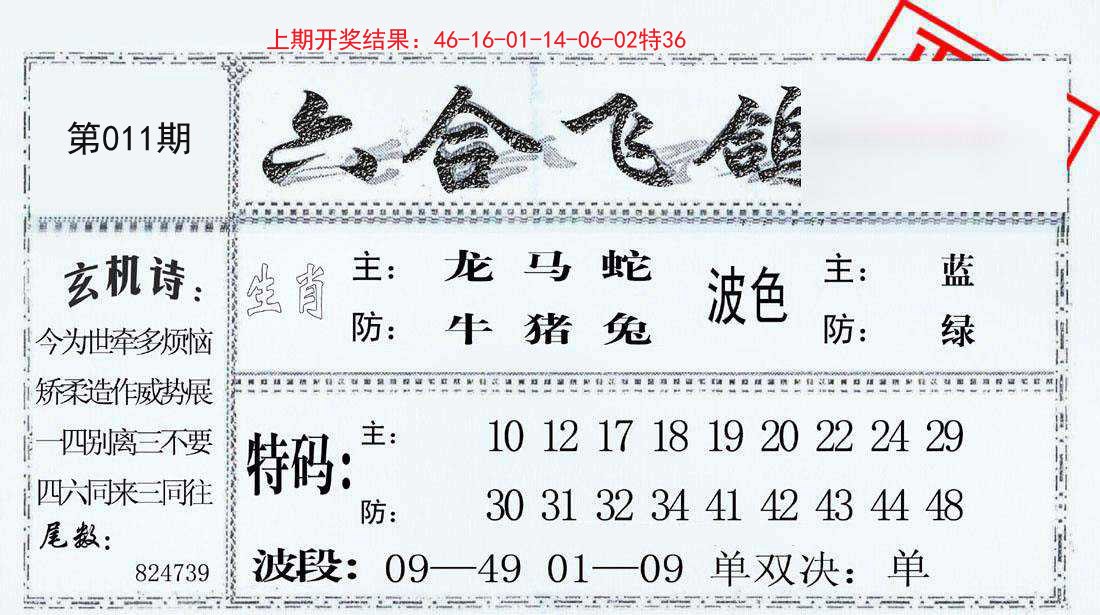 上期开奖结果：46-16-01-14-06-02特36
第011期
六合飞鸽
玄机诗：
今为世牵多烦恼
矫柔造作威势展
一四别离三不要
四六同来三同往
尾数：
824739
生肖
主： 龙 马 蛇
防： 牛 猪 兔
波色
主： 蓝
防： 绿
特码：
主： 10 12 17 18 19 20 22 24 29
防： 30 31 32 34 41 42 43 44 48
波段：09—49 01—09 单双决：单